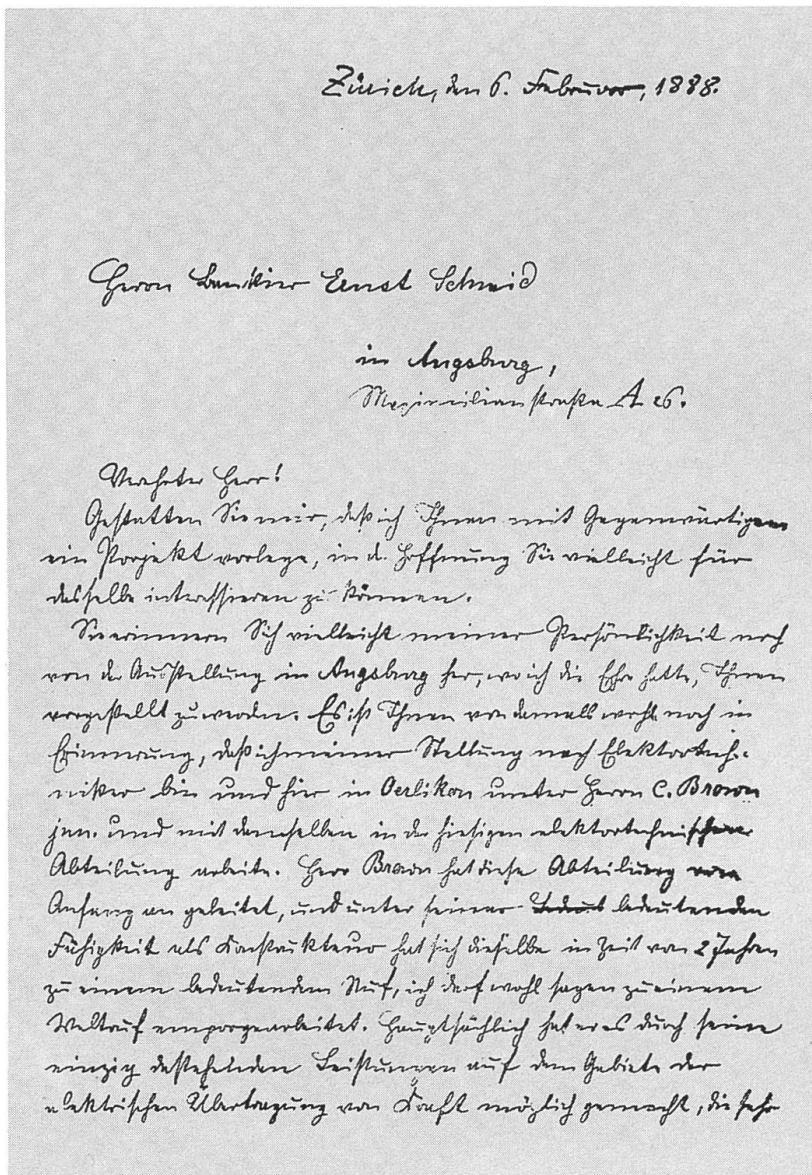 Zürich, den 6. Februar, 1888.
Herrn Bankier Ernst Schmid
in Augsburg,
Maximilianstraße A 26.
Verehrter Herr!
Gestatten Sie mir, daß ich Ihnen mit Gegenwärtigem
ein Projekt vorlege, in d. Hoffnung Sie vielleicht für
dasselbe interessieren zu können.
Sie erinnern Sich vielleicht meiner Persönlichkeit noch
von der Ausstellung in Augsburg her, wo ich die Ehre hatte, Ihnen
vorgestellt zu werden. Es ist Ihnen von damals wohl noch in
Erinnerung, daß ich meiner Stellung nach Elektrotech-
niker bin und hier in Oerlikon unter Herrn C. Brown
jun. und mit demselben in der hiesigen elektrotechnischen
Abteilung arbeite. Herr Brown hat diese Abteilung vom
Anfang an geleitet, und unter seiner bedeutenden
Fähigkeit als Konstrukteur hat sich dieselbe in Zeit von 2 Jahren
zu einem bedeutendem Ruf, ich darf wohl sagen zu einem
Weltruf emporgearbeitet. Hauptsächlich hat er es durch seine
einzig dastehenden Leistungen auf dem Gebiete der
elektrischen Übertragung von Kraft möglich gemacht, die sehr